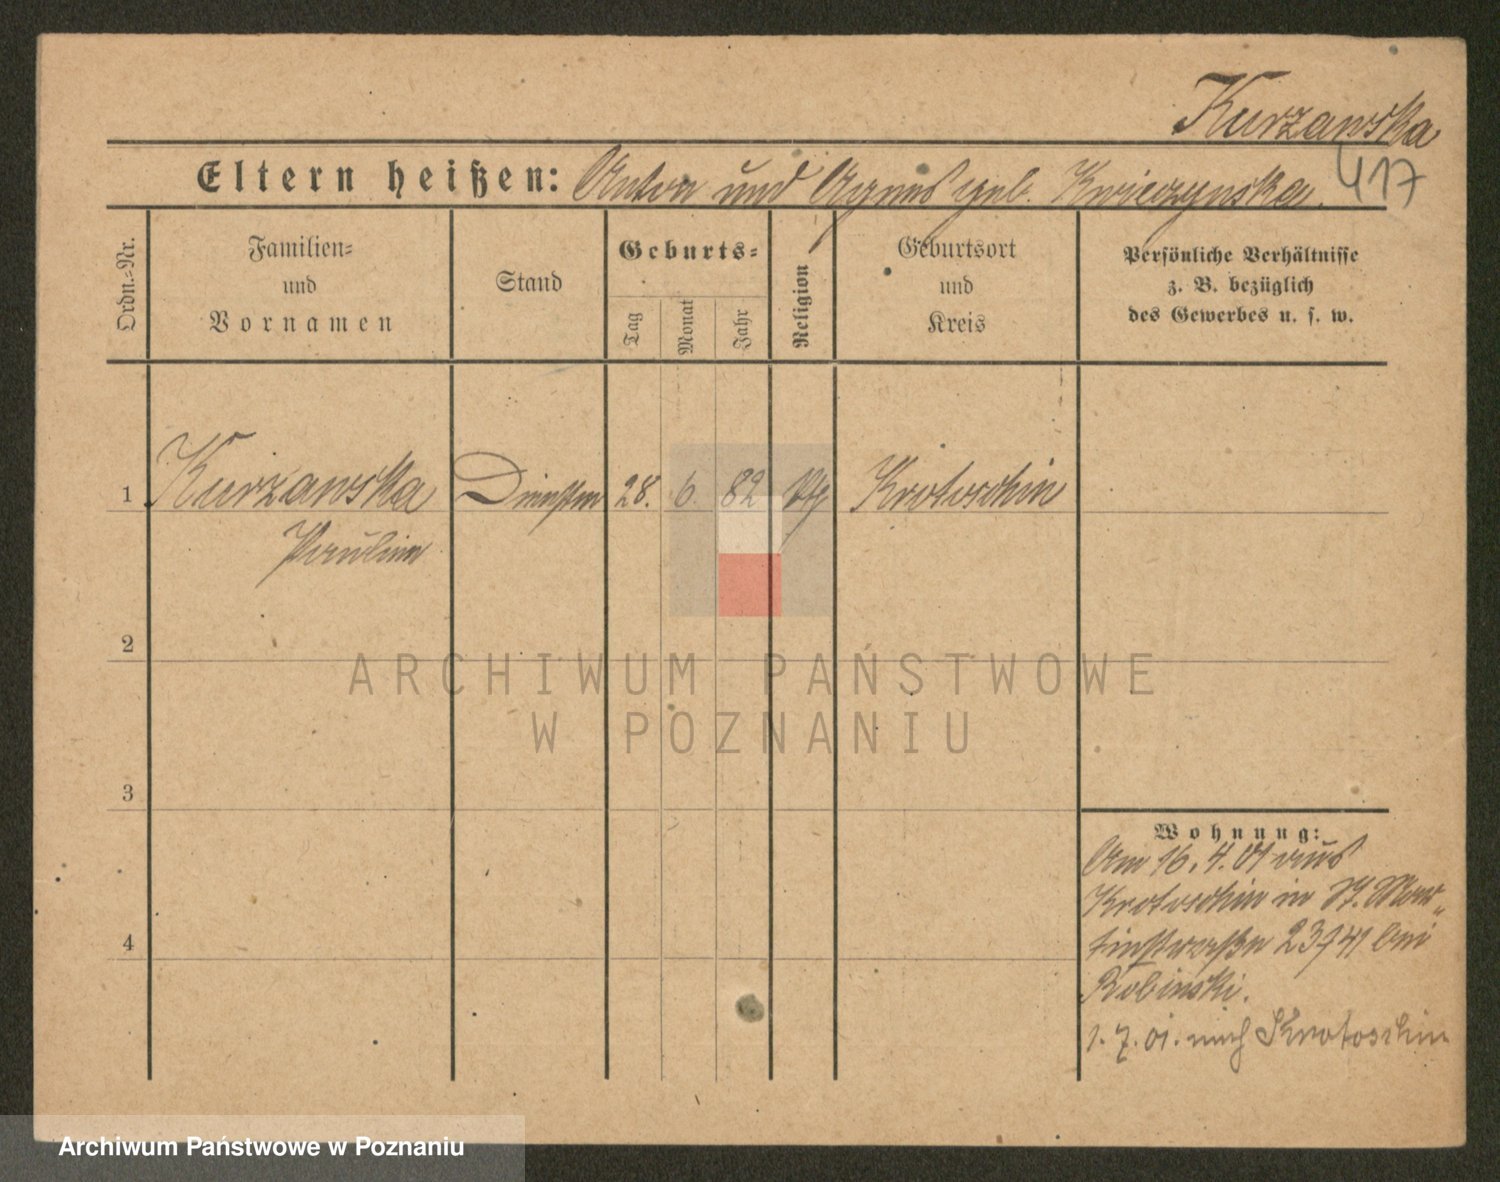 Kurzawska
417
Eltern heißen: Anton und Agnes geb. Kwiczynska.
Ordn.-Nr.
Familien-
und
Vornamen
Stand
Geburts-
Tag
Monat
Jahr
Religion
Geburtsort
und
Kreis
Persönliche Verhältnisse
z. B. bezüglich
des Gewerbes u. s. w.
1 Kurzawska 28. 6 82 Krotoschin
Pauline
2
3
4
Wohnung:
Am 16. 4. 01 aus
Krotoschin in St. Mar-
tinstraße bei
Robinski.
1. 7. 01. nach Krotoschin
ARCHIWUM PAŃSTWOWE
W POZNANIU
Archiwum Państwowe w Poznaniu